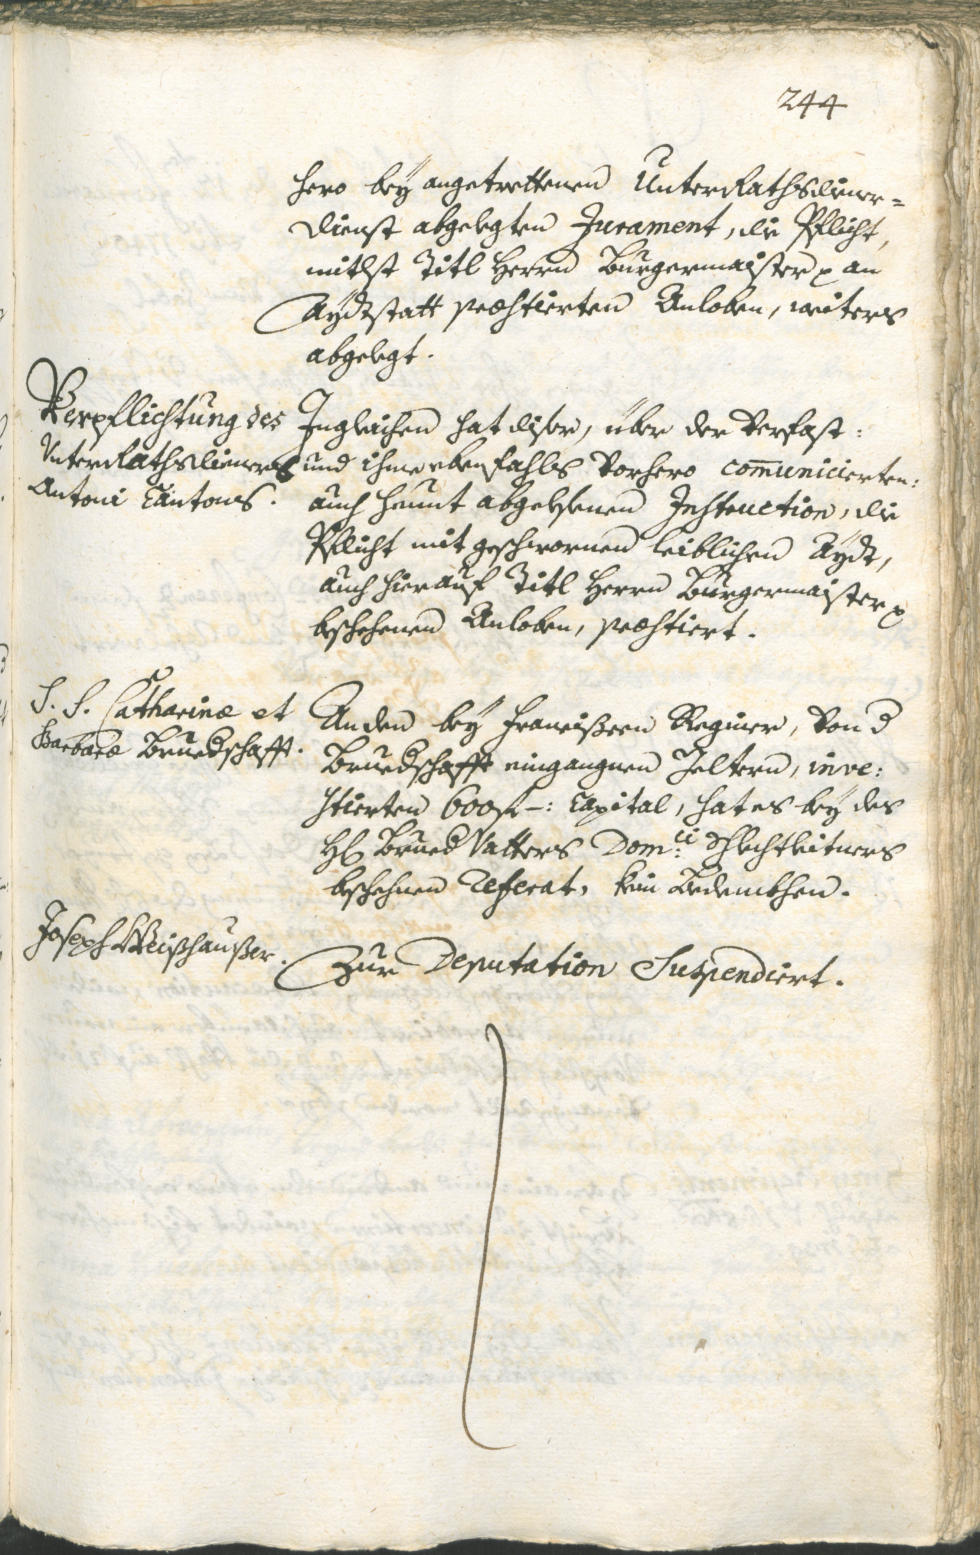 244
hero beÿ angetrettenen UnterRathsdiener=
dienst abgelegten Jurament, die Pflicht,
mitlst Titl Herrn Burgermaister p an
Aÿdtstatt præstierten Anloben, weiters
abgelegt.
Verpflichtung des
UnterRathsdieners
Antoni Cantons.
Ingleichen hat diser, über der verfast:
und ihme ebenfahls vorhero com̄unicierten:
auch heunt abgelesenen Instruction, die
Pflicht mit geschwornen leiblichen Aÿdt,
auch hierauf Titl Herrn Burgermaister p
beschehenen Anloben, præstiert.
S. S. Catharinæ et
Barbaræ Bruedschafft.
An den beÿ Francißcen Reginer, von d
Bruedschafft eingangnen Geltern, inve:
stierten 600 f –: Capital, hat es beÿ des
H Brued Vatters Dom: Schlechtleitners
beschehnen Referat, kein Bedenkhen.
Joseph Weißhaußer.
Zur Deputation Suspendiert.